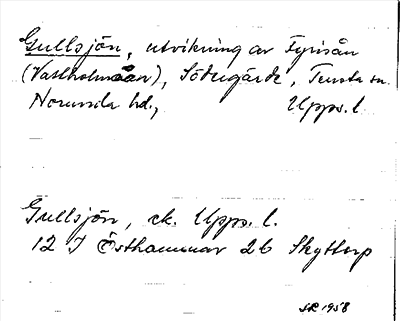 Gullsjön, utvikning av Fyrisån
(Vattholmaån), Södergärde, Tensta sn.
Norunda hd., Upps. l.
Gullsjön, ek. Upps. l.
12 I Östhammar 2b Skyttorp
SR 1958